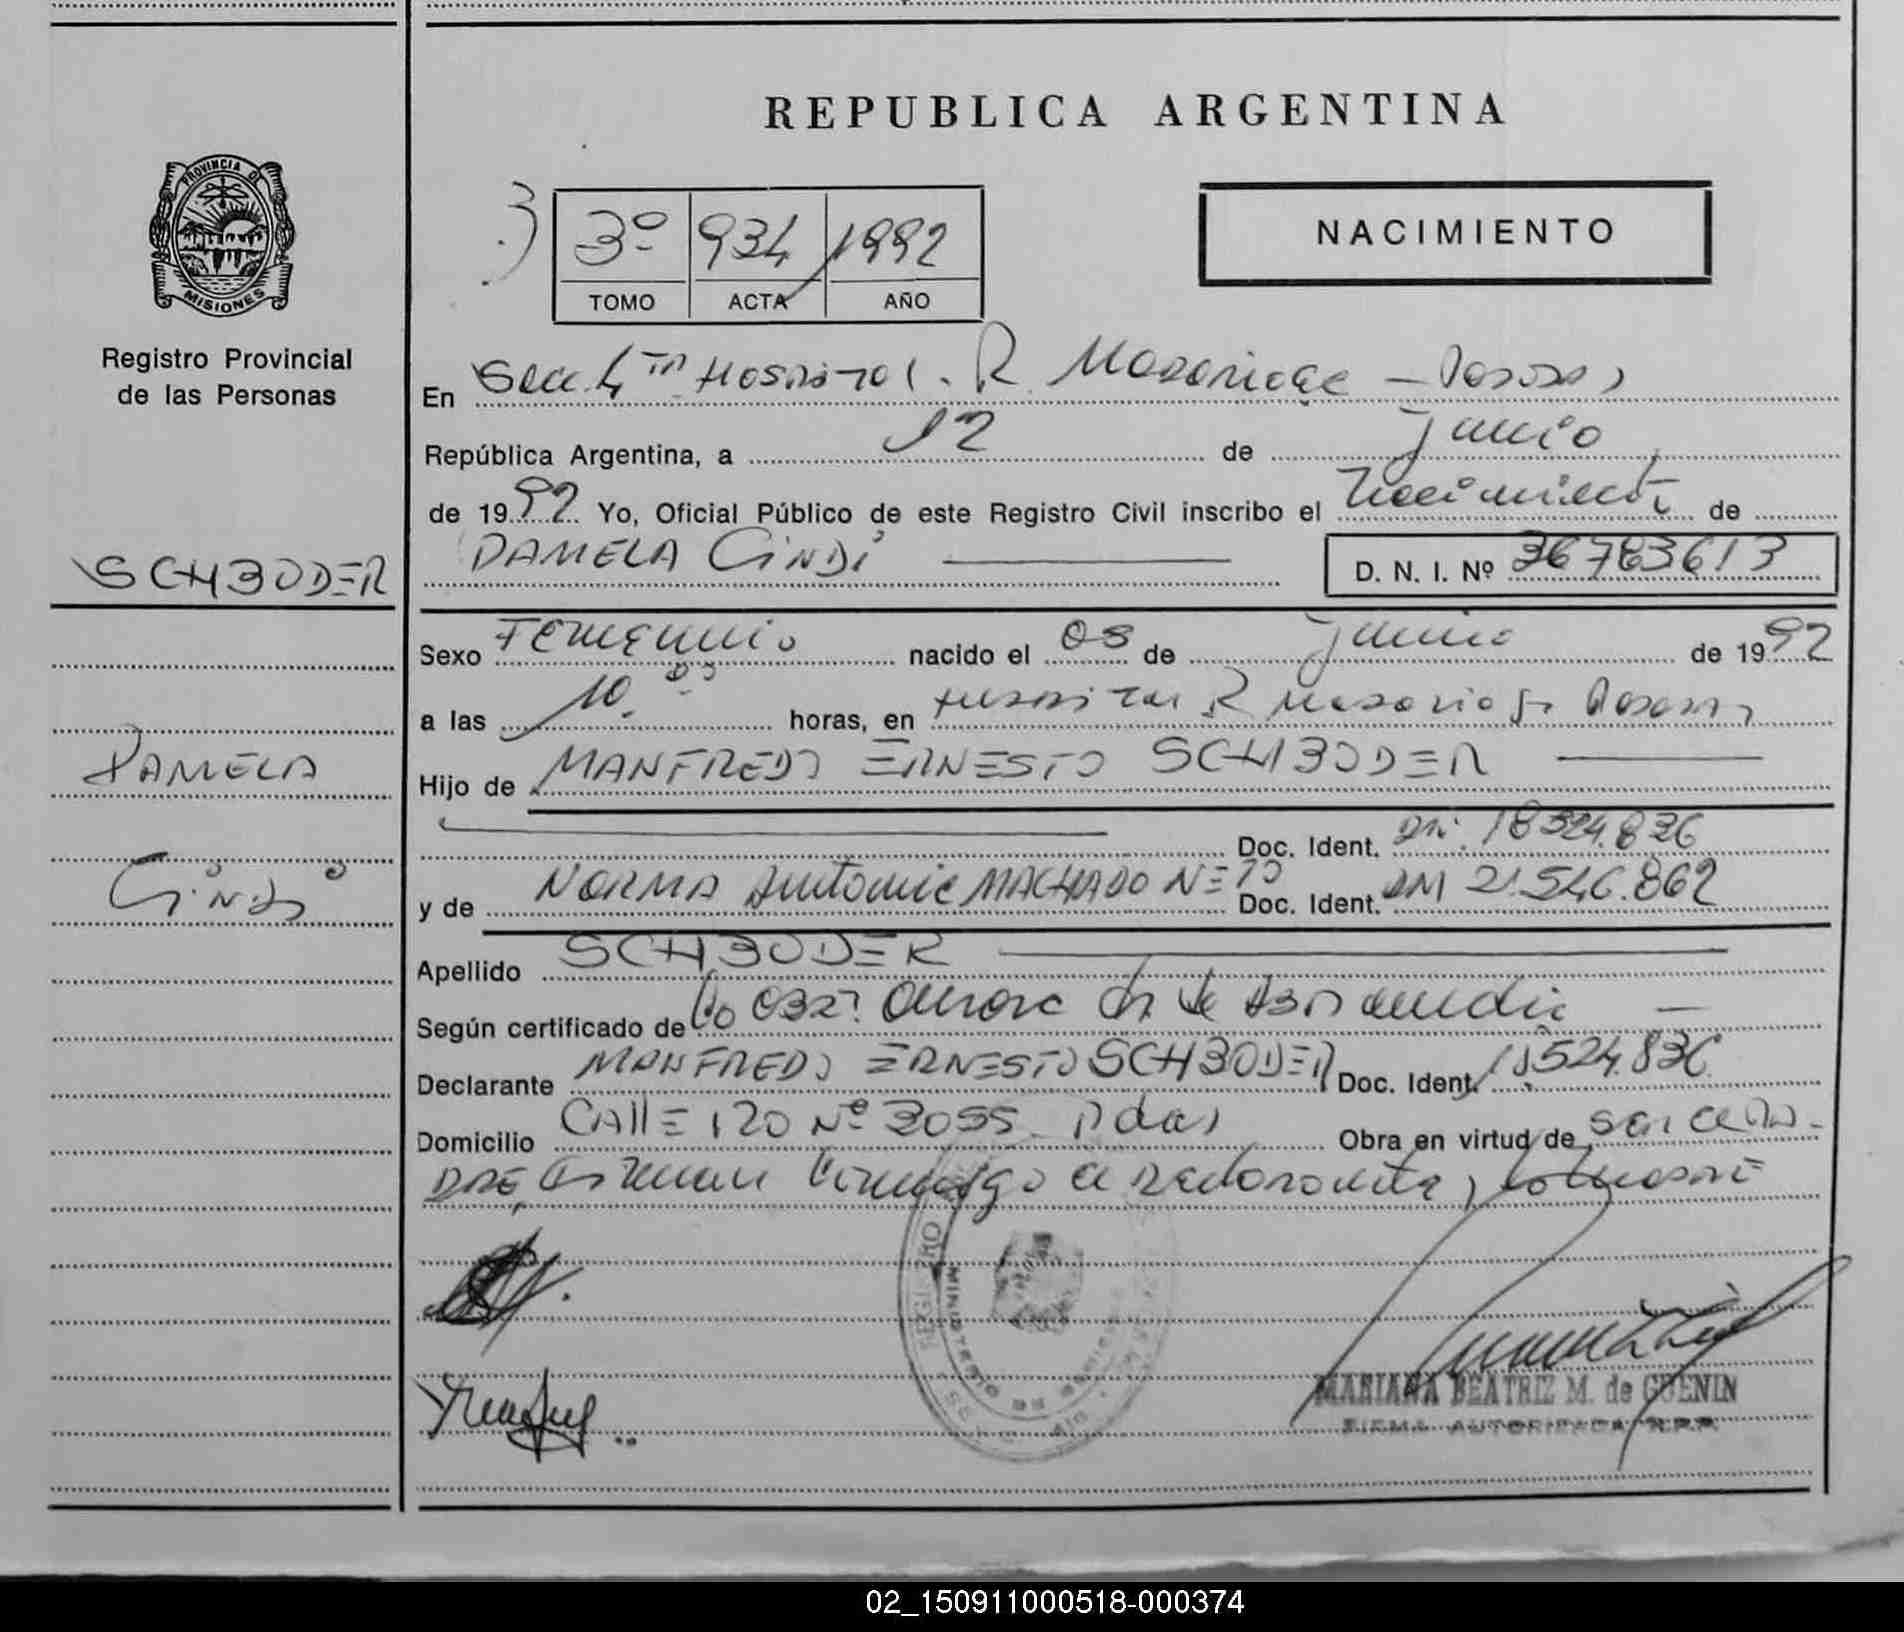 REPUBLICA ARGENTINA
PROVINCIA DE
MISIONES
Registro Provincial
de las Personas
3º 934 1992
TOMO ACTA AÑO
NACIMIENTO
En Secc. 4ta Hospital. R. Madariaga - Posadas
República Argentina, a 12 de junio
de 1992 Yo, Oficial Público de este Registro Civil inscribo el Nacimiento de
SCHBODER
PAMELA CINDI
D. N. I. Nº 36783613
Sexo Femenino nacido el 08 de junio de 1992
a las 10. horas, en Hospital R Madariaga Posadas
PAMELA
Hijo de MANFREDO ERNESTO SCHBODER
Doc. Ident. DNI. 18324.836
CINDI
y de NORMA Antonia MACHADO Doc. Ident. DNI 21.546.862
Apellido SCHBODER
Según certificado de
Declarante MANFREDO ERNESTO SCHBODER Doc. Ident. 524.836
Domicilio CALLE 120 Nº 3055 Pdas Obra en virtud de ser el Pa-
dre,
REGISTRO
MINISTERIO DE
MARIANA BEATRIZ M. de GUENIN
FIRMA AUTORIZADA R.P.P.
02_150911000518-000374